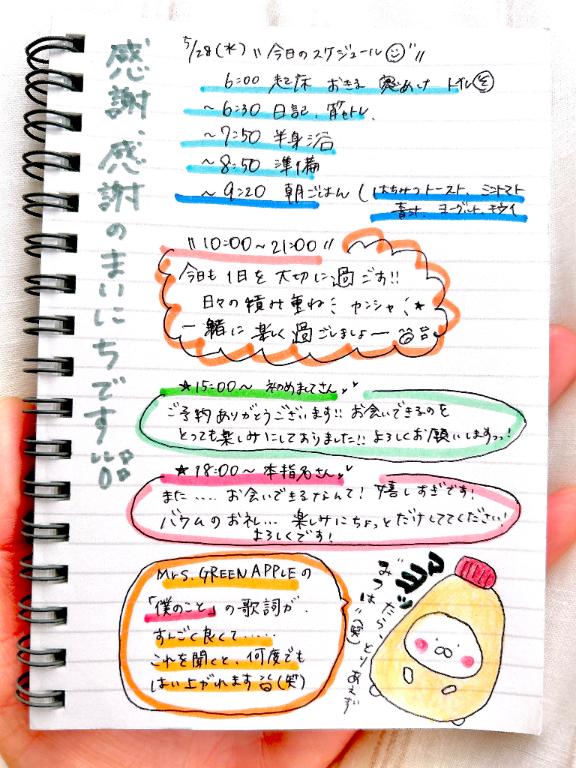 感謝、感謝のまいにちです
5/28(水) "今日のスケジュール"
6:00 起床 おきる
〜6:30 日記、筋トレ、
〜7:50 半身浴
〜8:50 準備
〜9:20 朝ごはん (はちみつトースト、ミニトマト
青汁、ヨーグルト、キウイ
"10:00〜21:00"
今日も1日を大切に過ごす!!
日々の積み重ね ミ カンシャ ミ★
一緒に楽しく過ごしましょー
★15:00〜 初めましてさん
ご予約ありがとうございます!! お会いできるのを
とっても楽しみにしておりました!! よろしくお願いしますっ!
★18:00〜 本指名さん
また.... お会いできるなんて! 嬉しすぎです!
バウムのお礼... 楽しみにちょっとだけしててください!
よろしくです!
Mrs. GREEN APPLEの
「僕のこと」の歌詞が、
すんごく良くて.....
これを聞くと、何度でも
はい上がれます(笑)
たら、とりあえず
みつは"(笑)